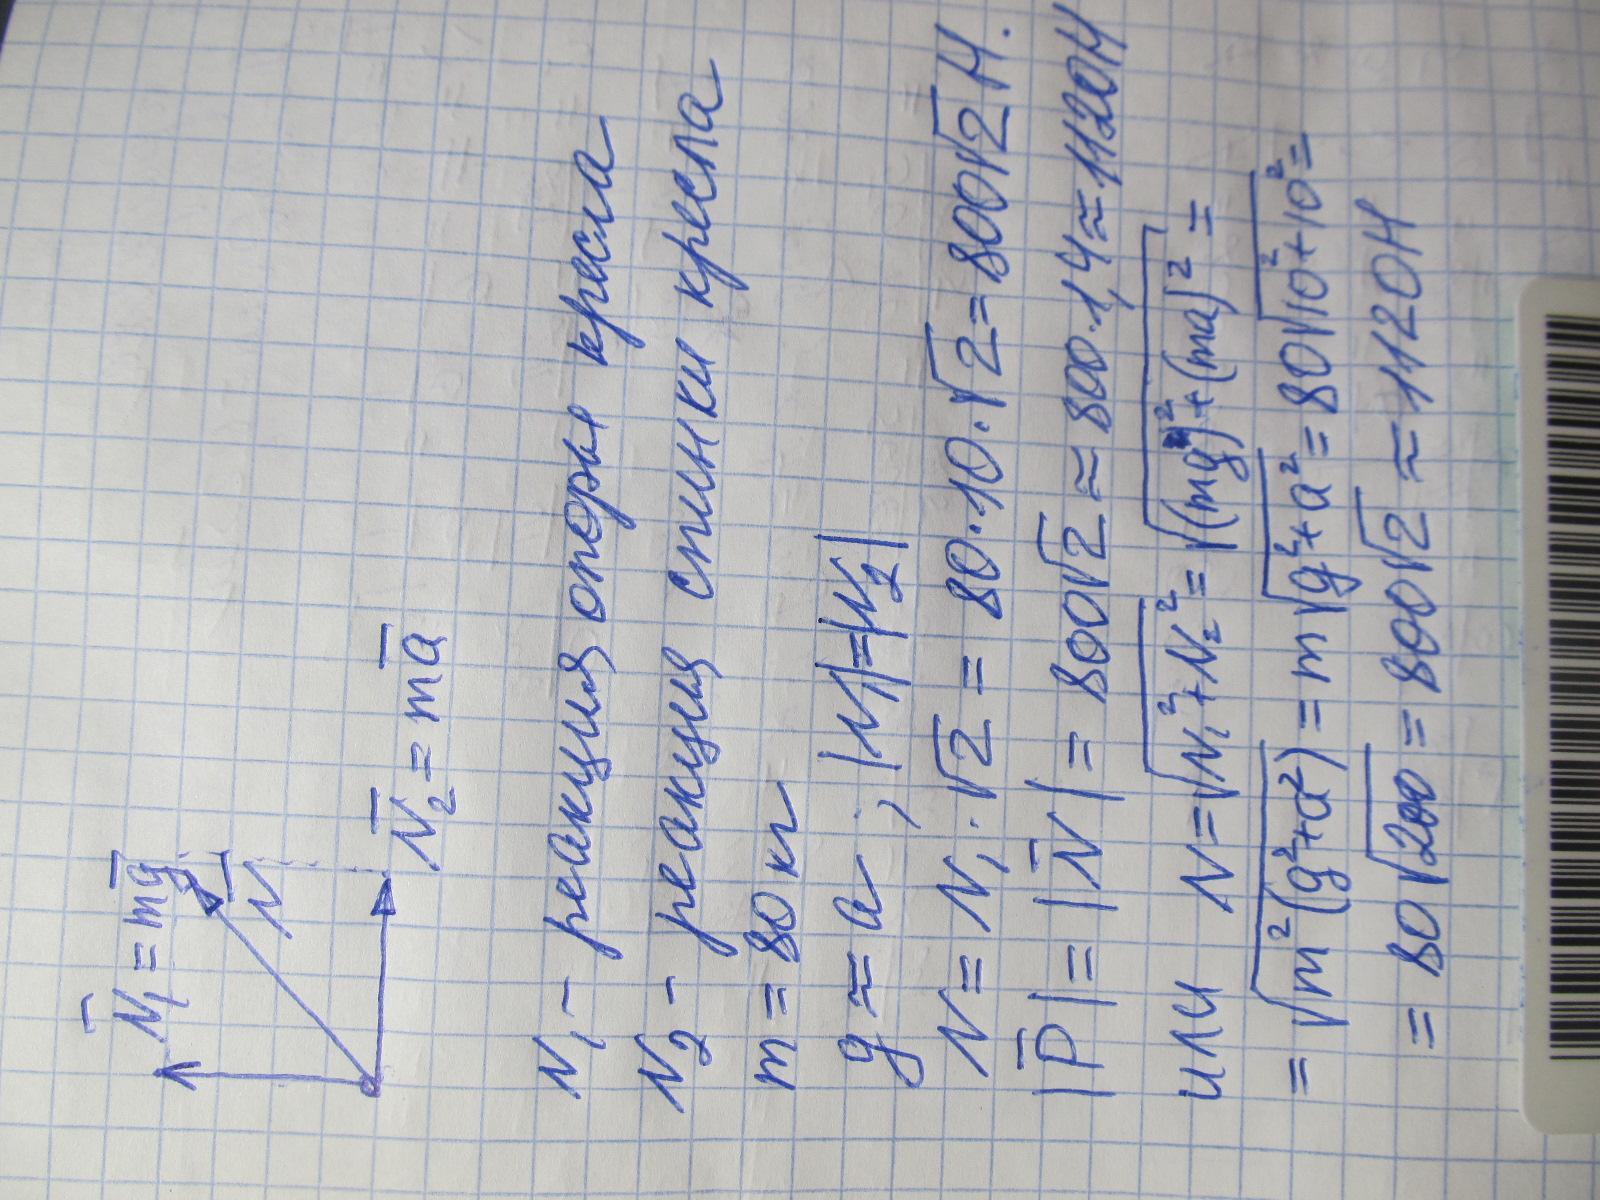 N̄₁ = mḡ
N̄
N̄₂ = mā
N₁ – реакция опоры кресла
N₂ – реакция спинки кресла
m = 80 кг
g ≈ a ; |N₁| = |N₂|
N = N₁·√2 = 80·10·√2 = 800√2 Н.
|P̄| = |N̄| = 800√2 ≈ 800·1,4 ≈ 1120Н
или N = √(N₁² + N₂²) = √((mg)² + (ma)²) =
= √(m²(g² + a²)) = m√(g² + a²) = 80√(10² + 10²) =
= 80√200 = 800√2 ≈ 1120Н